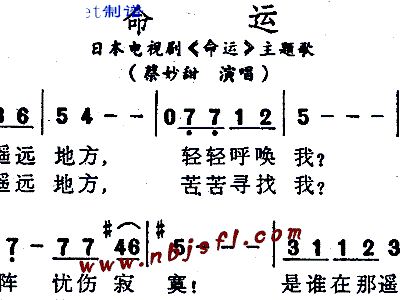 et制谱
命 运
日本电视剧《命运》主题歌
(蔡妙甜 演唱)
36 | 5 4 - - | 0 7 7 1 2 | 5 - - -
遥远 地方, 轻轻呼唤 我?
遥远 地方, 苦苦寻找 我?
7 - 7 7 #4 6 | #5 - - - | 3 1 1 2 3
阵 忧伤 寂 寞! 是谁在那遥
www.nbjsfl.com